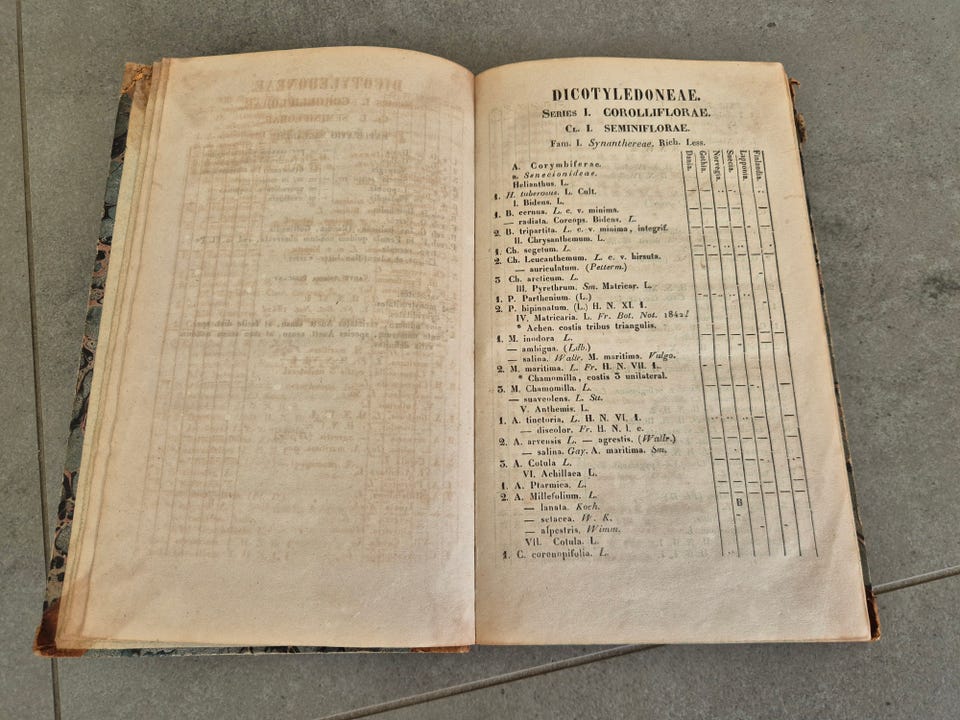 DICOTYLEDONEAE.
Series I. COROLLIFLORAE.
Cl. I. SEMINIFLORAE.
Fam. I. Synanthereae. Rich. Less.
Dania. Gothia. Norvegia. Suecia. Lapponia. Finlandia.
A. Corymbiferae.
a. Senecionideae.
Helianthus. L.
1. H. tuberosus. L. Cult.
I. Bidens. L.
1. B. cernua. L. c. v. minima.
— radiata. Coreops. Bidens. L.
2. B. tripartita. L. c. v. minima, integrif.
II. Chrysanthemum. L.
1. Ch. segetum. L.
2. Ch. Leucanthemum. L. c. v. hirsuta.
— auriculatum. (Petterm.)
3 Ch. arcticum. L.
III. Pyrethrum. Sm. Matricar. L.
1. P. Parthenium. (L.)
2. P. bipinnatum. (L.) H. N. XI. 1.
IV. Matricaria. L. Fr. Bot. Not. 1842!
* Achen. costis tribus triangulis.
1. M. inodora L.
— ambigua. (Ldb.)
— salina. Wallr. M. maritima. Vulgo.
2. M. maritima. L. Fr. H. N. VII. 1.
* Chamomilla, costis 3 unilateral.
3. M. Chamomilla. L.
— suaveolens. L. Su.
V. Anthemis. L.
1. A. tinctoria, L. H. N. VI. 1.
— discolor. Fr. H. N. l. c.
2. A. arvensis L. — agrestis. (Wallr.)
— salina. Gay. A. maritima. Sm.
3. A. Cotula L.
VI. Achillaea L.
1. A. Ptarmica. L.
2. A. Millefolium. L.
— lanata. Koch. B
— setacea. W. K.
— alpestris. Wimm.
VII. Cotula. L.
1. C. coronopifolia. L.